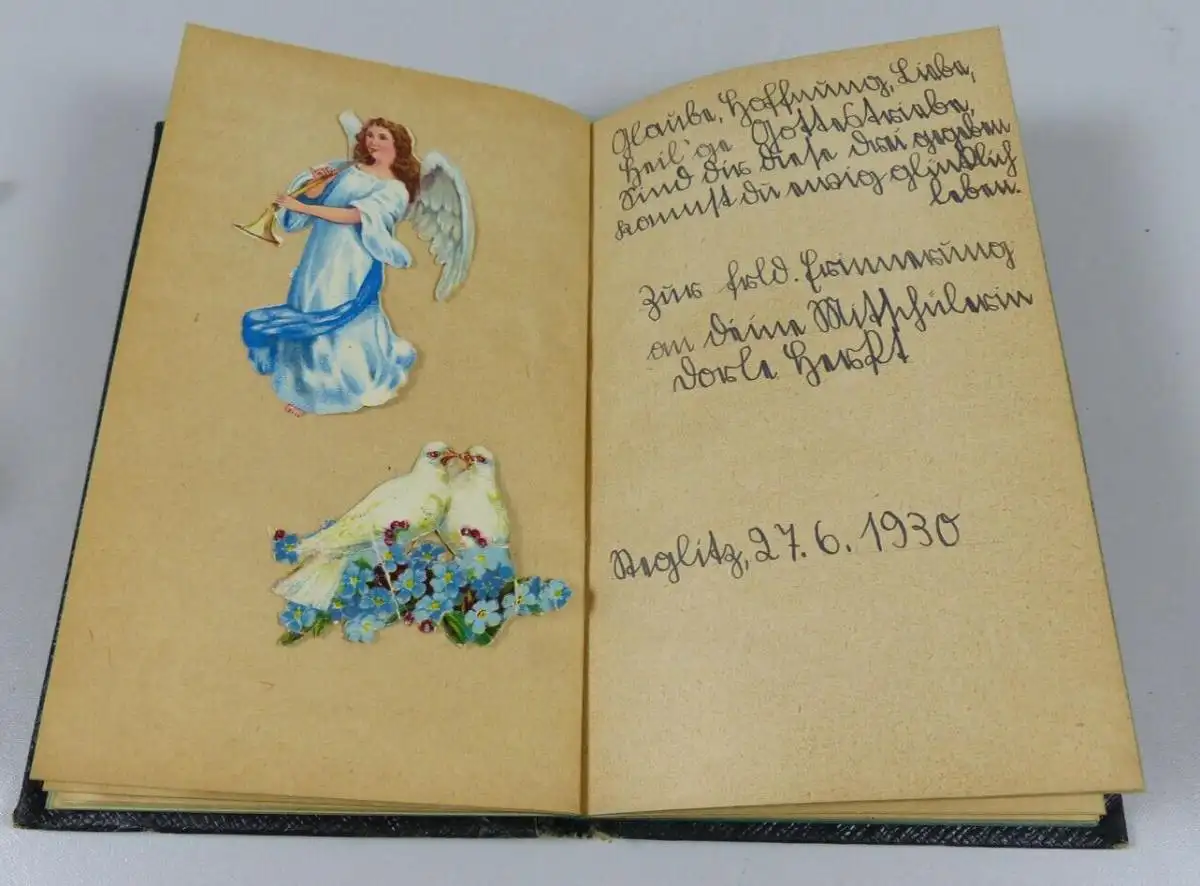 Glaube, Hoffnung, Liebe,
Heil'ge Gottestriebe,
Sind dir diese drei gegeben
kannst du ewig glücklich
leben.
Zur frld. Erinnerung
an deine Mitschülerin
Dorle Herkt
Steglitz, 27. 6. 1930